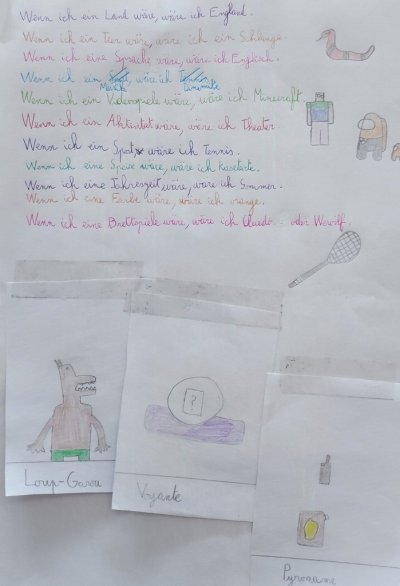 Wenn ich ein Land wäre, wäre ich England.
Wenn ich ein Tier wäre, wäre ich ein Schlange.
Wenn ich eine Sprache wäre, wäre ich Englisch.
Wenn ich ein Sport, wäre ich Tennis
Musik
Wenn ich ein Videospiele wäre, wäre ich Minecraft.
Wenn ich ein Aktivität wäre, wäre ich Theater
Wenn ich ein Sport wäre ich Tennis.
Wenn ich eine Speise wäre, wäre ich
Wenn ich eine Jahreszeit wäre, wäre ich Sommer.
Wenn ich eine Farbe wäre, wäre ich orange.
Wenn ich eine Brettspiele wäre, wäre ich Cluedo oder
Loup-Garou
Voyante
Pyromane